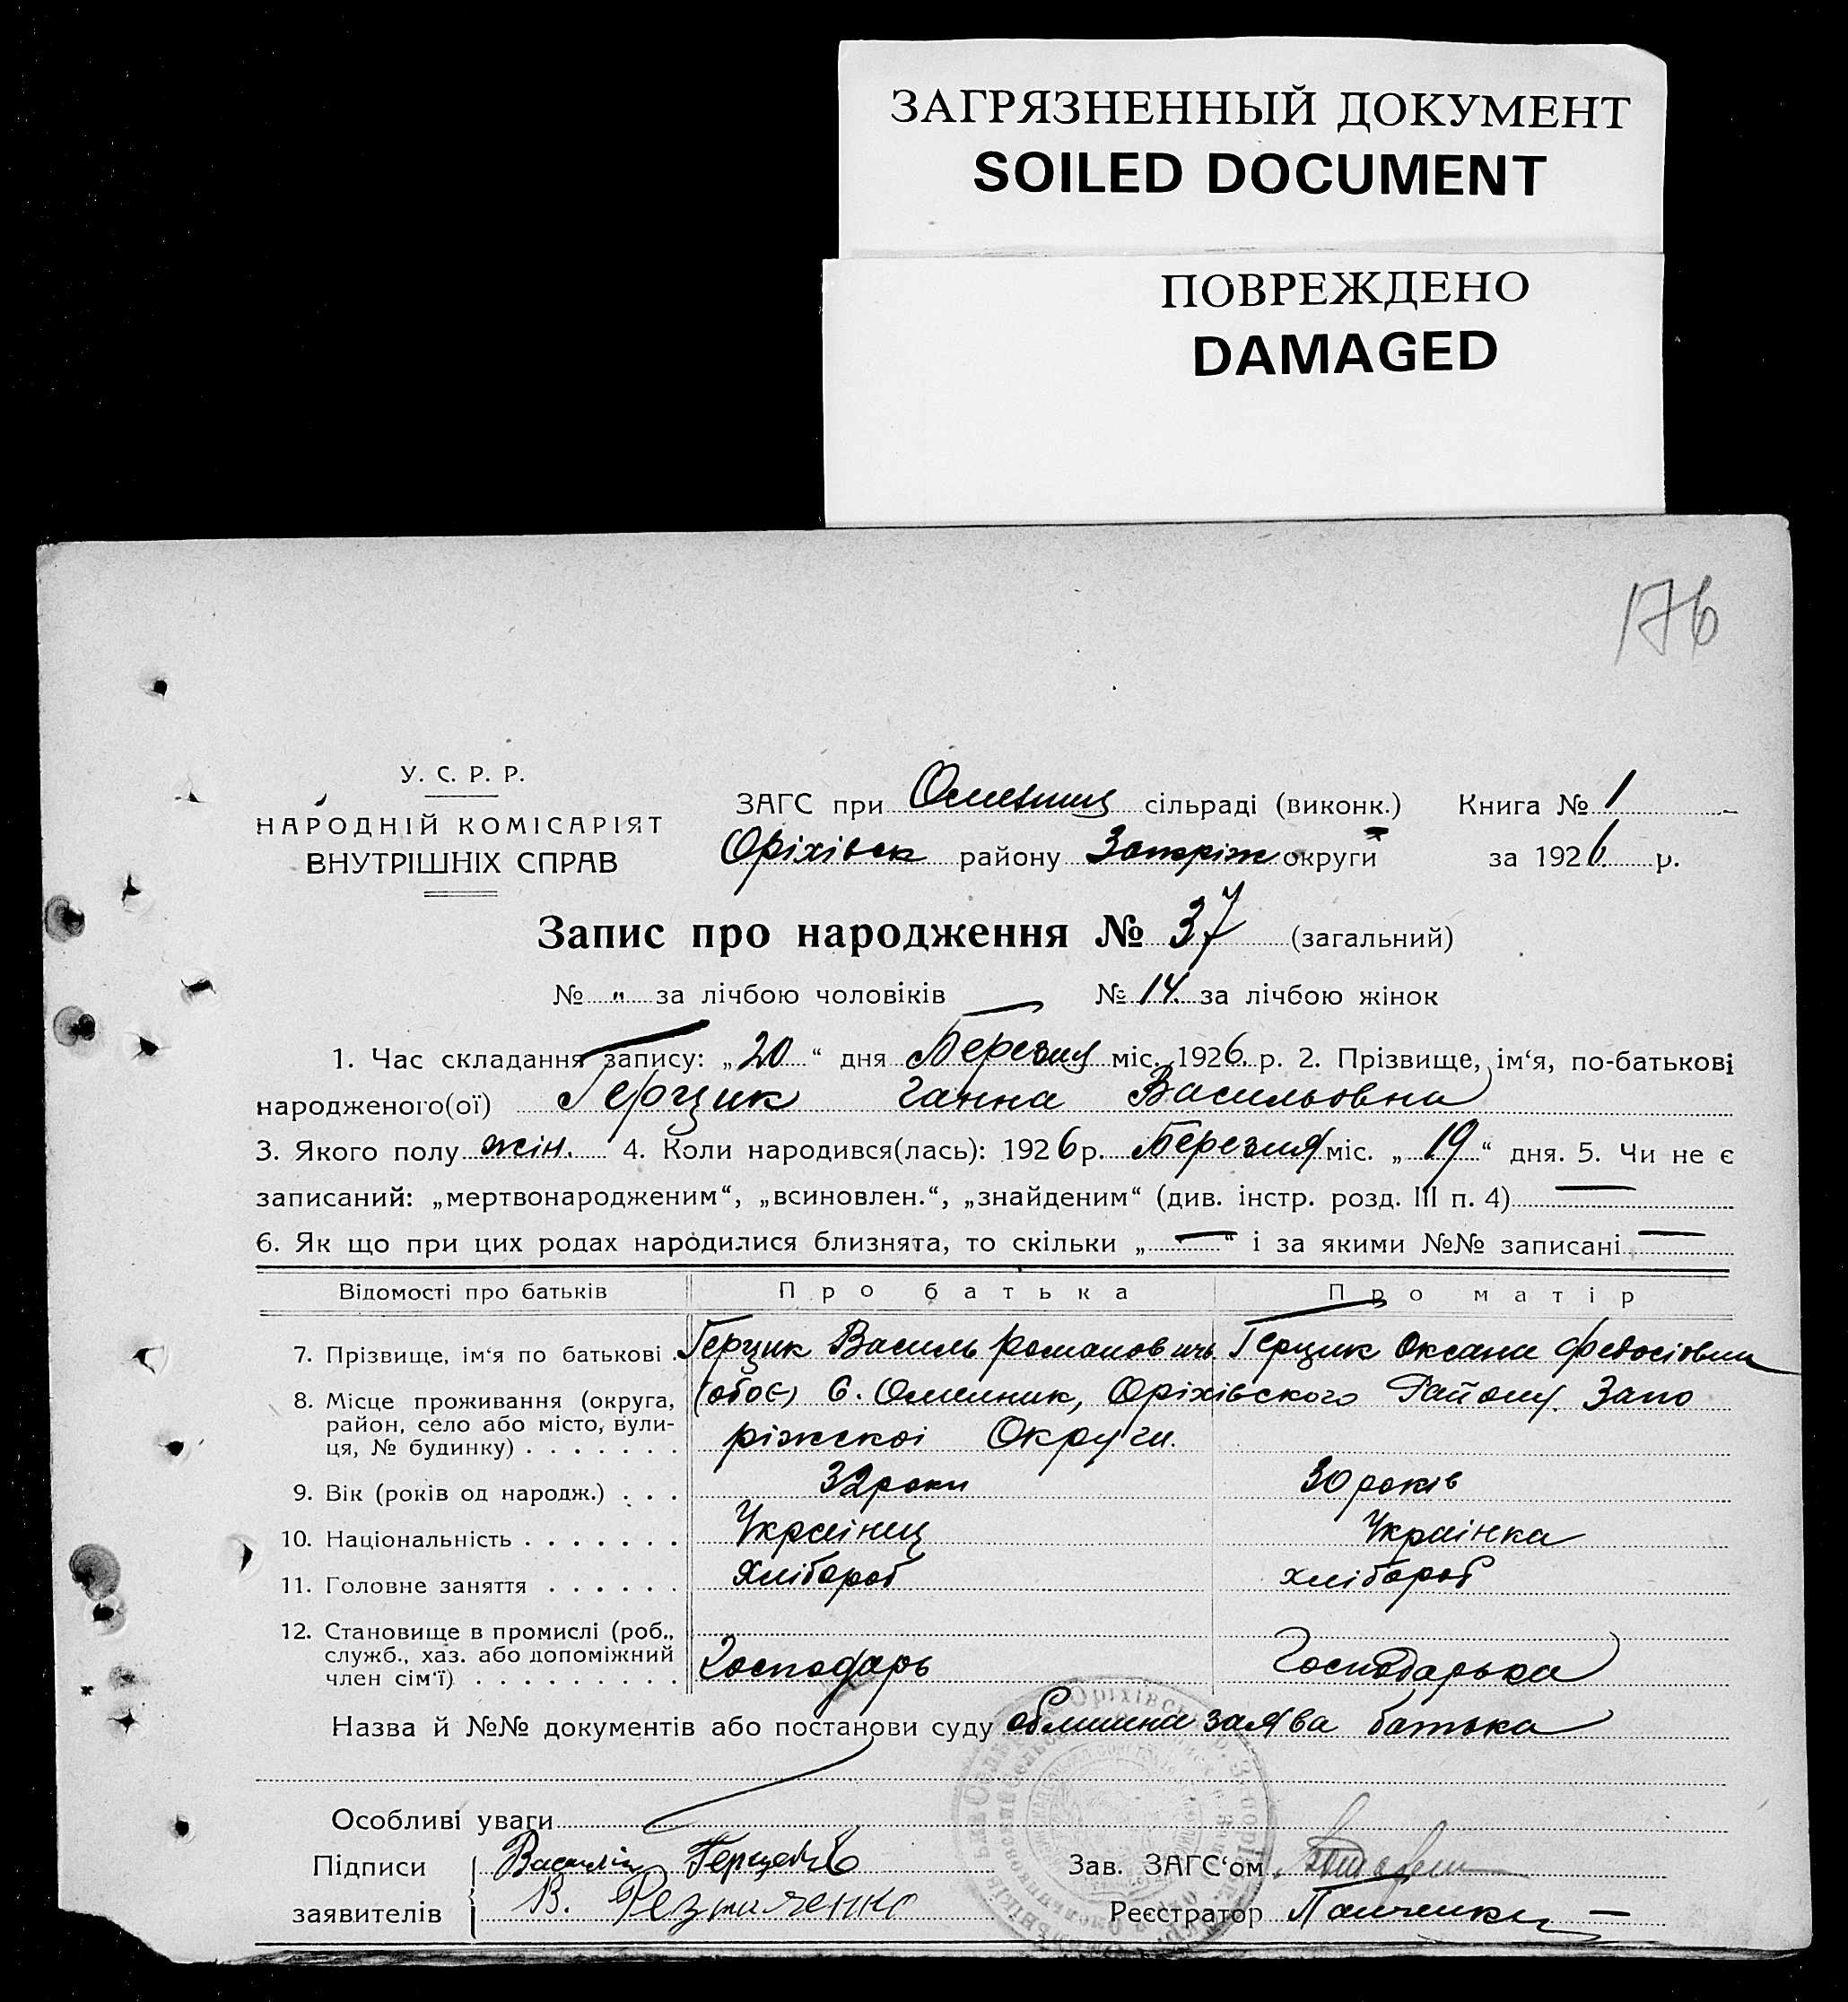 ЗАГРЯЗНЕННЫЙ ДОКУМЕНТ
SOILED DOCUMENT
ПОВРЕЖДЕНО
DAMAGED
176
У. С. Р. Р.
НАРОДНІЙ КОМІСАРІЯТ
ВНУТРІШНІХ СПРАВ
ЗАГС при сільраді (виконк.) Книга № 1
Оріхівск району Запоріж округи за 1926 р.
Запис про народження № 37 (загальний)
№ " за лічбою чоловіків № 14. за лічбою жінок
1. Час складання запису: „20“ дня Березня міс. 1926. р. 2. Прізвище, ім‘я, по-батькові
народженого(ої) Герцик Ганна Васильовна
3. Якого полу жін. 4. Коли народився(лась): 1926 р. Березня міс. „19“ дня. 5. Чи не є
записаний: „мертвонародженим“, „всиновлен.“, „знайденим“ (див. інстр. розд. III п. 4) —
6. Як що при цих родах народилися близнята, то скільки „—“ і за якими №№ записані —
Відомості про батьків Про батька Про матір
7. Прізвище, ім‘я по батькові . Герцик Василь Романовичь Герцик Оксана Федосіовна
8. Місце проживання (округа, район, село або місто, вули-ця, № будинку) . . . . . . . (обоє) с. Омелник, Оріхівского Району. Запо
ріжскоі Округи.
9. Вік (років од народж.) . . . 32 роки 30 років
10. Національність . . . . . . . Украінец Украінка
11. Головне заняття . . . . . . Хлібороб хлібороб
12. Становище в промислі (роб., служб., хаз. або допоміжний член сім‘ї) . . . . . . . . . Господарь Господарька
Назва й №№ документів або постанови суду заява батька
Особливі уваги
Підписи Зав. ЗАГС‘ом
заявителів В. Реєстратор